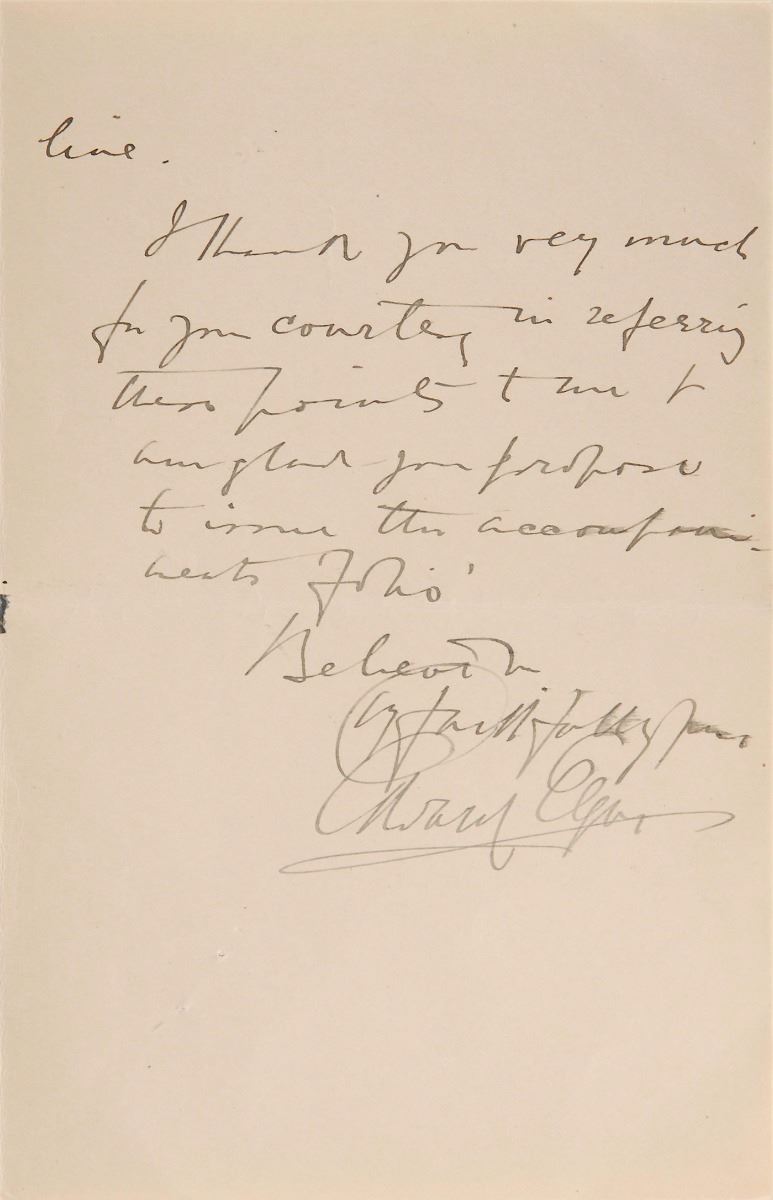 line.
I thank you very much
for your courtesy in referring
these points to me &
am glad you propose
to issue the accompani-
ments 'folio'
Believe me
faithfully yours
Edward Elgar